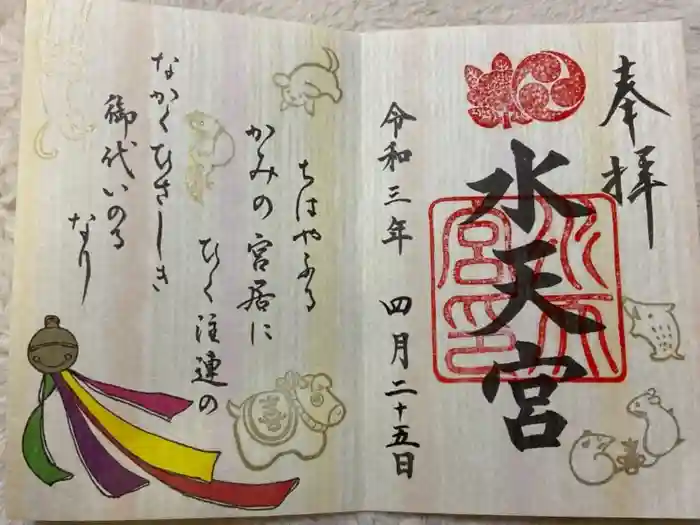 奉拝
水天宮
令和三年 四月二十五日
ちはやふる
かみの宮居に
ひく注連の
なかくひさしき
御代いのる
なり